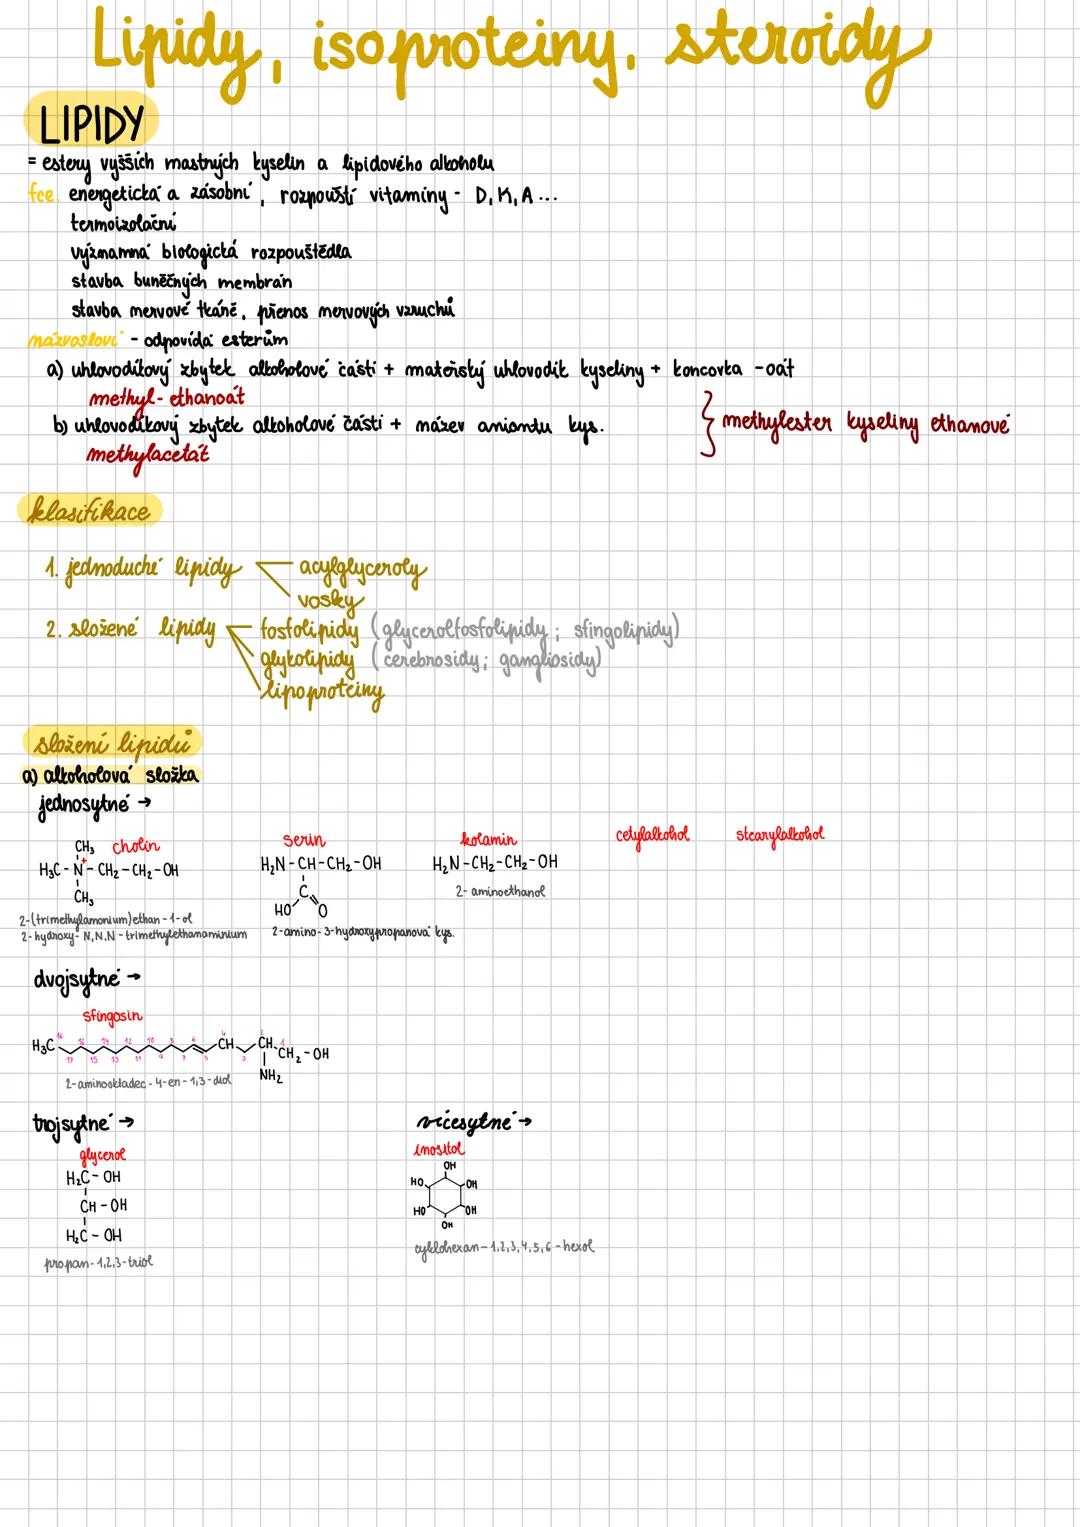 Lipidy, isoproteiny, steroidy
LIPIDY
= estery vyšších mastných kyselin a lipidového alkoholu
fce. energetická a zásobní, rozpouští vitamíny - D, K, A...
termoizolační
významná biologická rozpouštědla
stavba buněčných membrán
stavba nervové tkáně, přenos nervových vzruchů
názvosloví - odpovídá esterům
a) uhlovodíkový zbytek alkoholové části + mateřský uhlovodík kyseliny + koncovka -oát
methyl-ethanoát
b) uhlovodíkový zbytek alkoholové části + název aniontu kys.
methylacetát
} methylester kyseliny ethanové
klasifikace
1. jednoduché lipidy
acylglyceroly
vosky
2. složené lipidy
fosfolipidy (glycerolfosfolipidy; sfingolipidy)
glykolipidy (cerebrosidy; gangliosidy)
lipoproteiny
složení lipidů
a) alkoholová složka
jednosytné →
cholin
CH₃
H₃C - N⁺ - CH₂ - CH₂ - OH
CH₃
2-(trimethylamonium)ethan-1-ol
2-hydroxy-N,N,N-trimethylethanaminium
serin
H₂N - CH - CH₂ - OH
C
HO O
2-amino-3-hydroxypropanová kys.
kolamin
H₂N - CH₂ - CH₂ - OH
2-aminoethanol
cetylalkohol
stearylalkohol
dvojsytné →
sfingosin
H₃C CH CH CH₂ - OH
NH₂
2-aminooktadec-4-en-1,3-diol
trojsytné →
glycerol
H₂C - OH
CH - OH
H₂C - OH
propan-1,2,3-triol
vícesytné →
inositol
OH
HO OH
HO OH
OH
cyklohexan-1,2,3,4,5,6-hexol